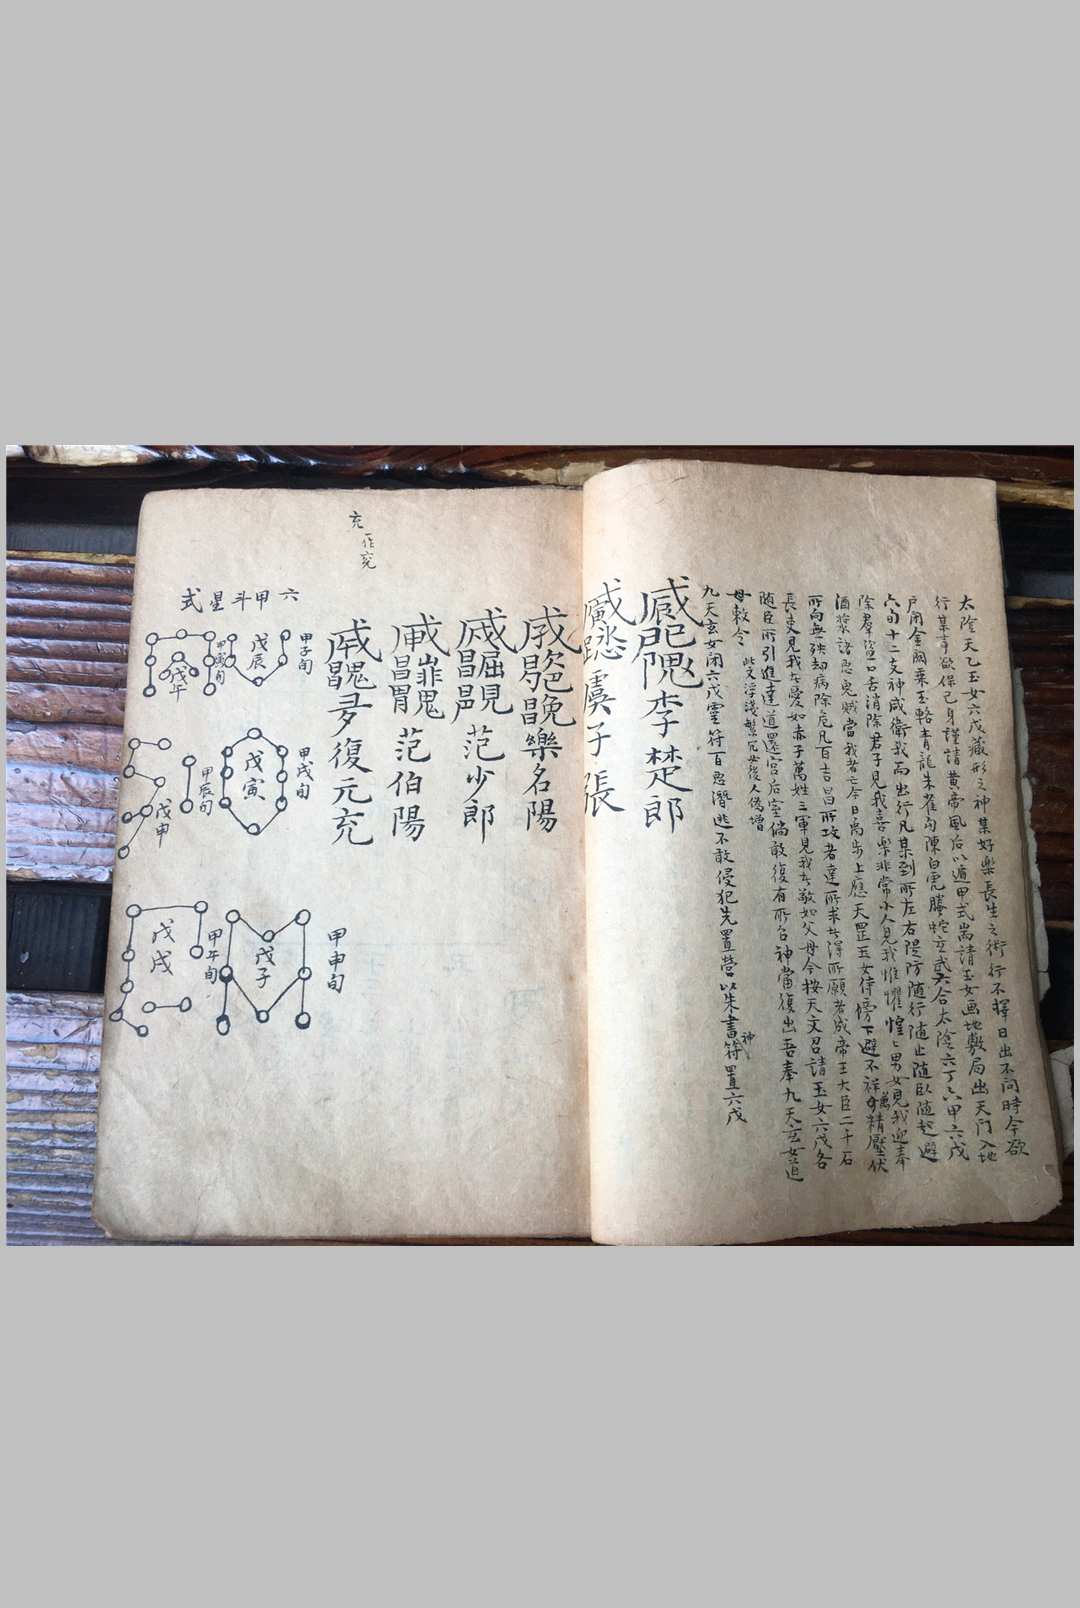 太陰天乙玉女六戊藏形之神某好樂長生之術行不擇日出不問時今欲
行某事欲保己身謹請黃帝風后以遁甲式耑請玉女画地敷局出天門入地
戶閉金闕乘玉輅青龍朱雀勾陳白虎螣蛇玄武六合太陰六丁六甲六戊
六旬十二支神咸衛我而出行凡某到所左右隄防随行随止随臥随起避
除羣盜口舌消除君子見我喜樂非常小人見我惟懼惶々男女見我迎奉
酒漿諸惡鬼賊當我者亡今日禹步上應天罡玉女侍傍下避不祥萬精壓伏
所向無殃却病除危凡百吉昌所攻者達所求者得所願者成帝王大臣二千石
長吏見我者愛如赤子萬姓三軍見我者敬如父母今按天文召請玉女六戊各
随臣所引進達道還宮后室倘敢復有所召神當復出吾奉九天玄女追
母敕令 此文浮淺繁冗女後人偽增
九天玄女閉六戊靈符百惡潛逃不敢侵犯先置營以朱書符置六戊
神
李楚郎
虞子張
樂名陽
范少郎
范伯陽
復元充
充一作兖
六甲斗星式
甲子旬
戊辰
甲寅旬
戊午
甲戌旬
戊寅
甲辰旬
戊申
甲申旬
戊子
甲午旬
戊戌